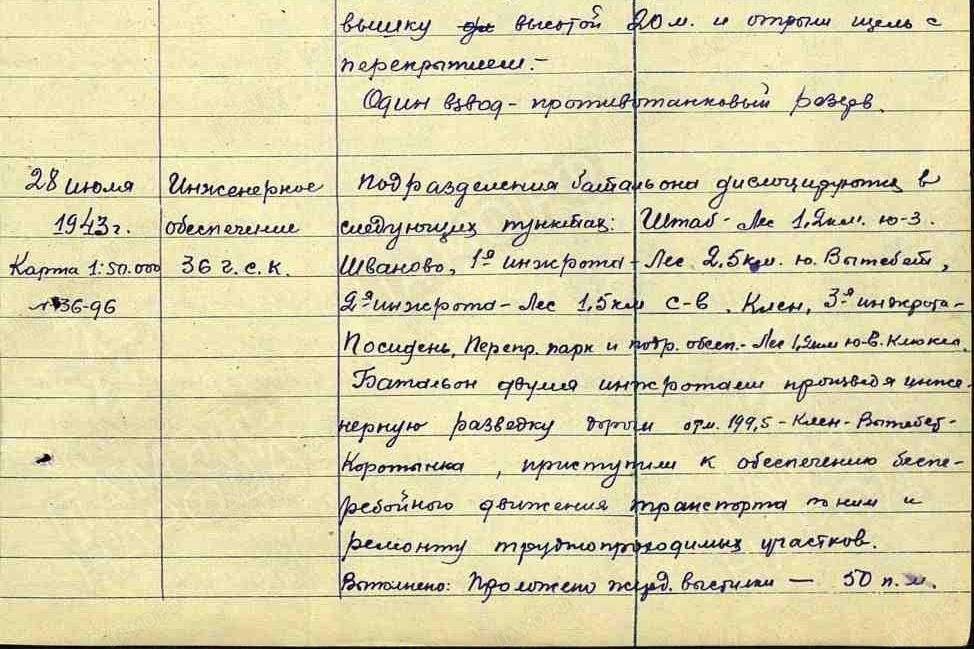 вышку высотой 20 м. и отрыли щель с
перекрытием.-
Один взвод - противотанковый резерв.
28 июля Инженерное Подразделения батальона дислоцируются в
1943 г. обеспечение следующих пунктах: Штаб - Лес 1,2 км. ю-з.
Карта 1:50.000 36 г.с.к. Шваново, 1я инжрота - Лес 2,5 км. ю. Вытебеть,
N-36-96 2я инжрота - Лес 1,5 км с-в. Клен, 3я инжрота -
Посидень, Перепр. парк и подр. обесп. - Лес 1,2 км ю-в. Клюкв.
Батальон двумя инжротами произведя инже-
нерную разведку дорог отм. 199,5 - Клен - Вытебеть -
Коротынка, приступили к обеспечению беспе-
ребойного движения транспорта по ним и
ремонту труднопроходимых участков.
Выполнено: Проложено жерд. выстилки — 50 п. м.